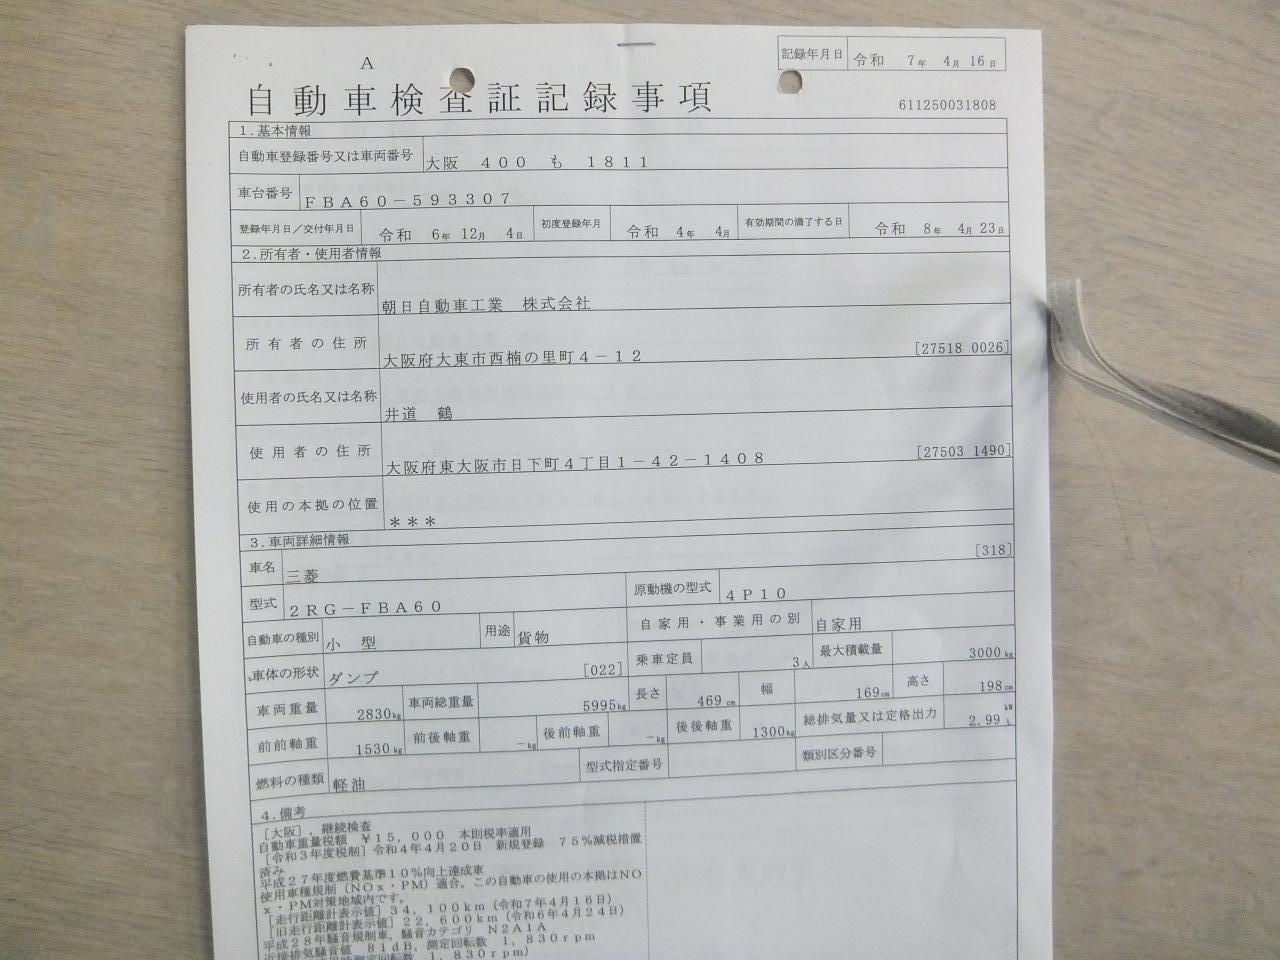 記録年月日 令和 7年 4月 16日
A
自動車検査証記録事項
611250031808
1.基本情報
自動車登録番号又は車両番号 大阪 400 も 1811
車台番号 FBA60-593307
登録年月日/交付年月日 令和 6年 12月 4日 初度登録年月 令和 4年 4月 有効期間の満了する日 令和 8年 4月 23日
2.所有者・使用者情報
所有者の氏名又は名称 朝日自動車工業 株式会社
所有者の住所 大阪府大東市西楠の里町4-12 [27518 0026]
使用者の氏名又は名称 井道 鶴
使用者の住所 大阪府東大阪市日下町4丁目1-42-1408 [27503 1490]
使用の本拠の位置 ***
3.車両詳細情報
車名 三菱 [318]
型式 2RG-FBA60 原動機の型式 4P10
自動車の種別 小型 用途 貨物 自家用・事業用の別 自家用
車体の形状 ダンプ [022] 乗車定員 3人 最大積載量 3000kg
車両重量 2830kg 車両総重量 5995kg 長さ 469cm 幅 169cm 高さ 198cm
前前軸重 1530kg 前後軸重 -kg 後前軸重 -kg 後後軸重 1300kg 総排気量又は定格出力 2.99 kW L
燃料の種類 軽油 型式指定番号 類別区分番号
4.備考
[大阪],継続検査
自動車重量税額 ¥15,000 本則税率適用
[令和3年度税制]令和4年4月20日 新規登録 75%減税措置
済み
平成27年度燃費基準10%向上達成車
使用車種規制(NOx・PM)適合。この自動車の使用の本拠はNO
x・PM対策地域内です。
[走行距離計表示値]34,100km(令和7年4月16日)
[旧走行距離計表示値]22,600km(令和6年4月24日)
平成28年騒音規制車,騒音カテゴリ N2A1A
近接排気騒音値 81dB,測定回転数 1,830rpm
測定回転数 1,830rpm)